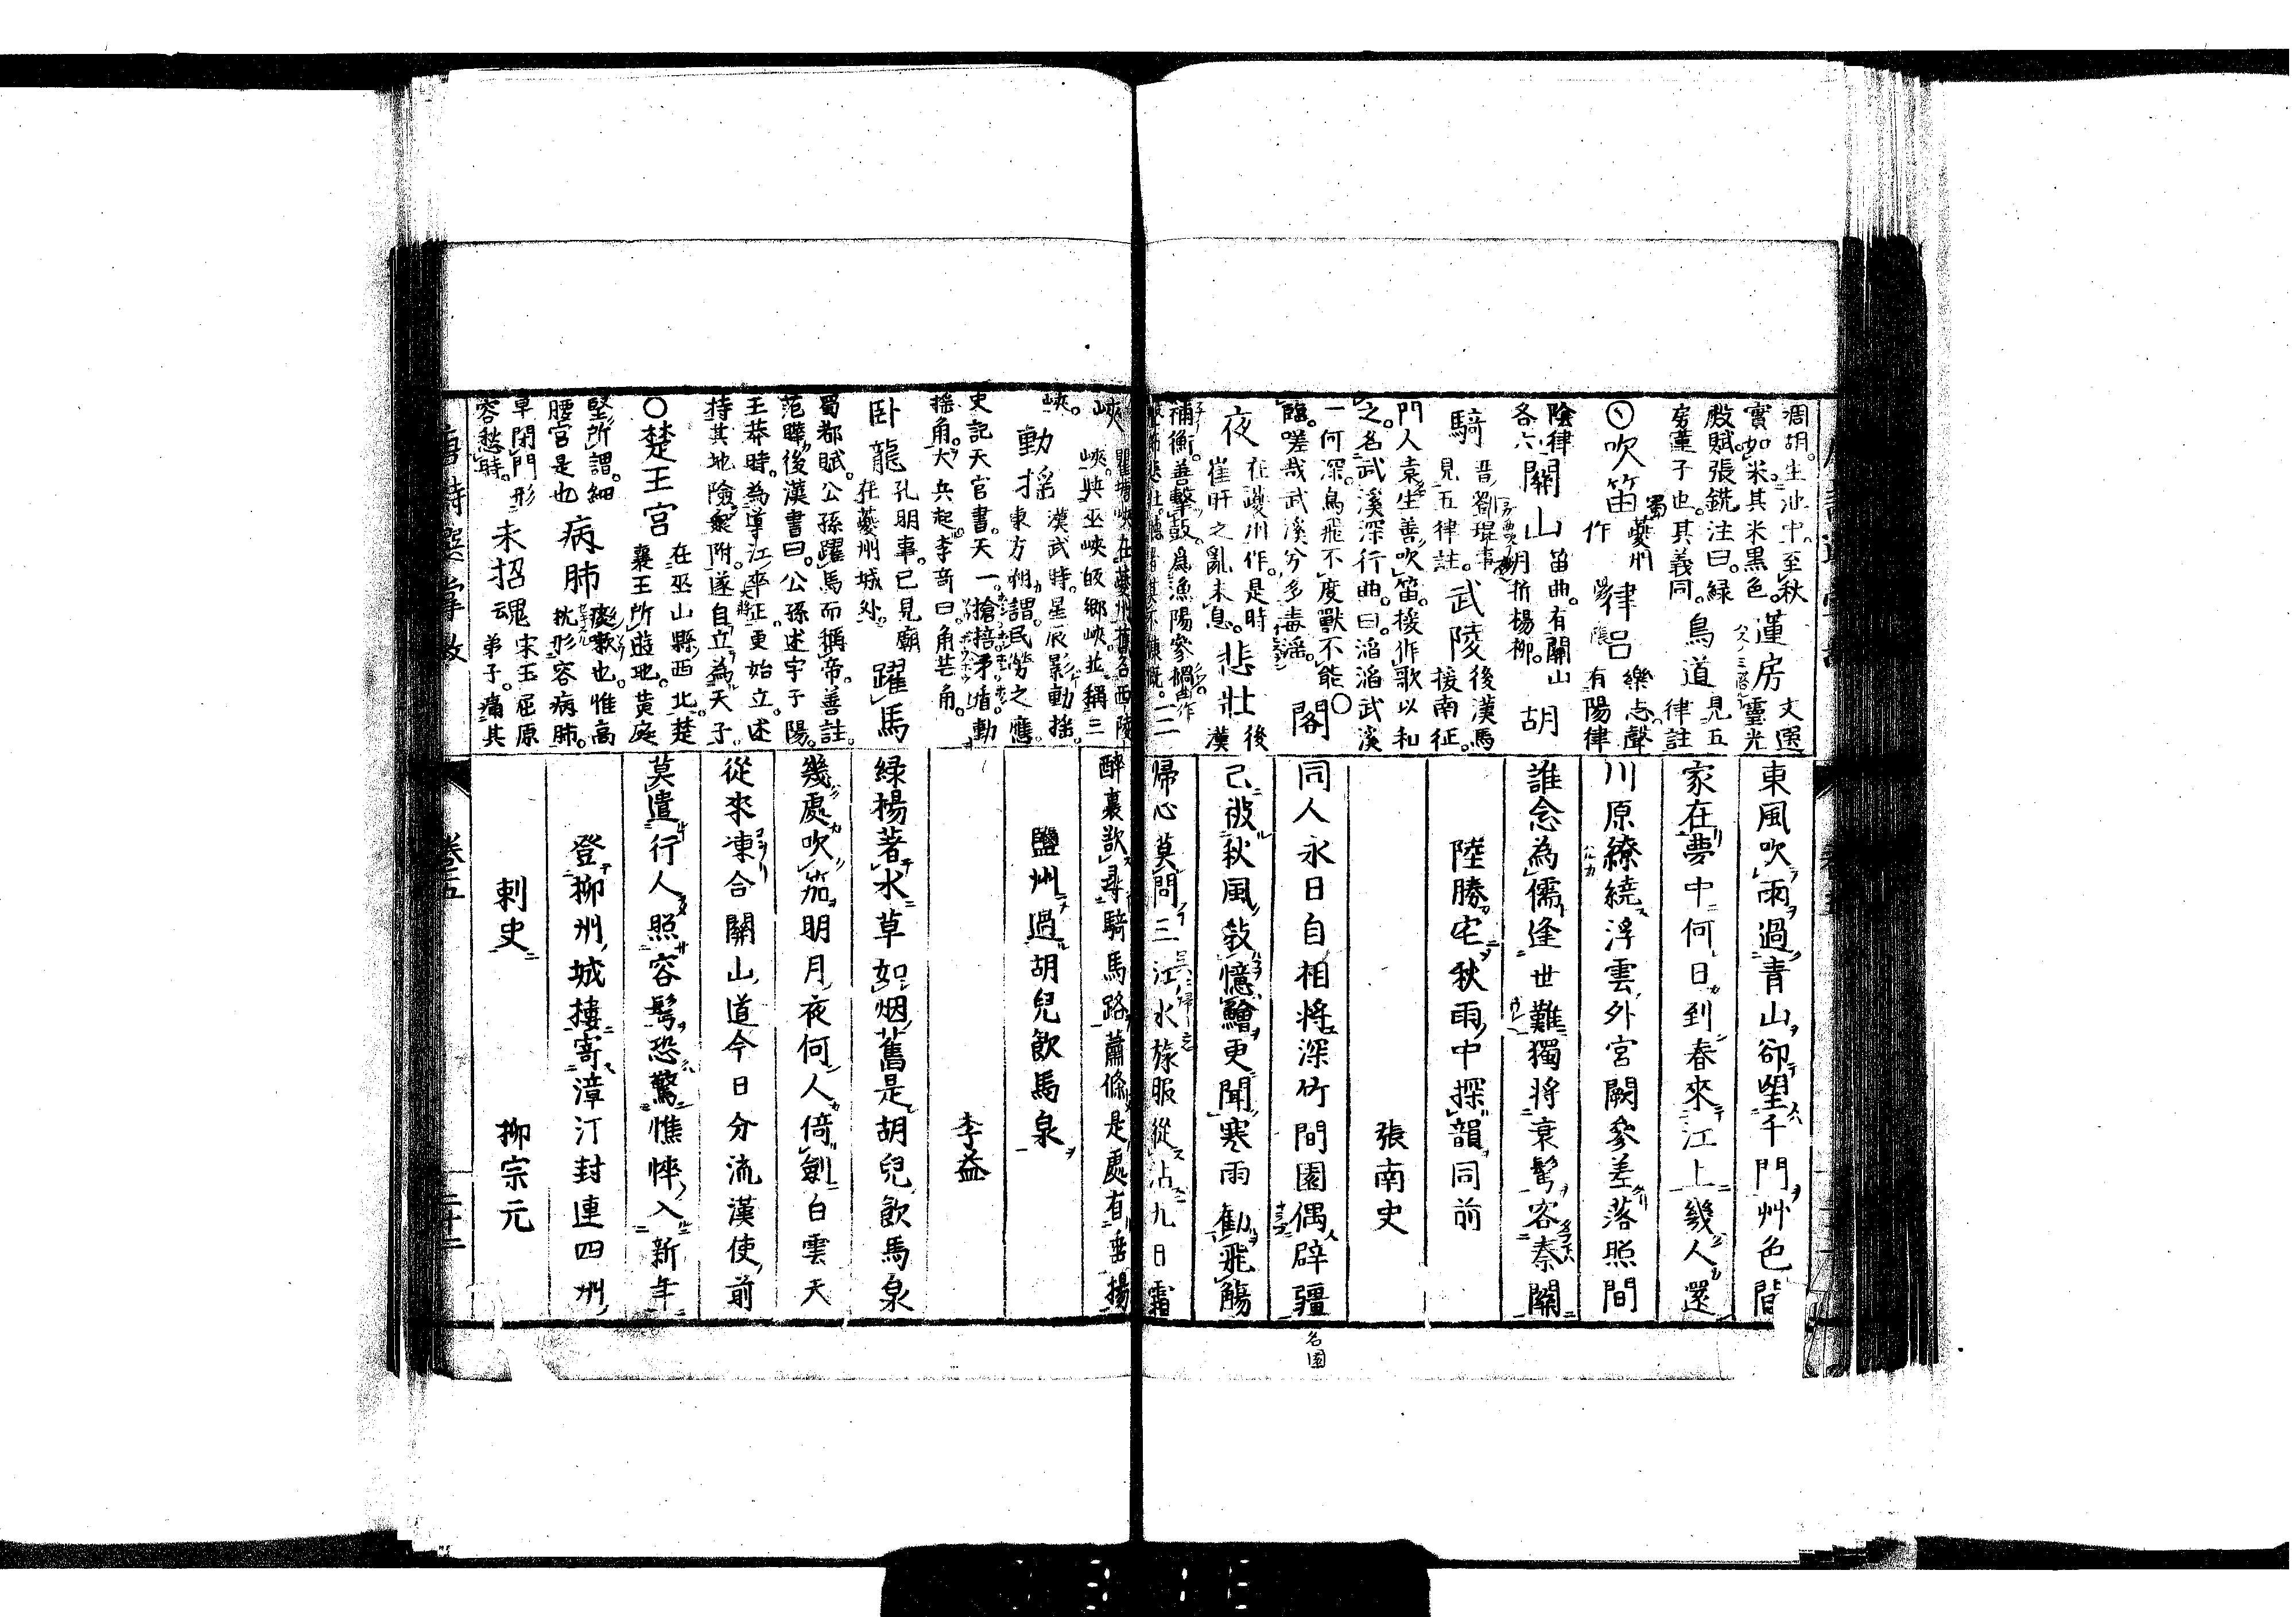 凋胡。生池中。至秋
實如米其米黒色。蓮房
文選
靈光
殿賦張銑注曰。緑
房蓮子也。其義同。鳥道
見五
律註
吹笛
蜀夔州
作
律呂
樂志。聲
有陽律
陰律
各六
關山
笛曲。有關山
月折楊柳。
胡
騎
晋劉琨事
見五律註。
武陵
後漢馬
援南征。
門人袁生善吹笛。援作歌以和
之。名武溪深行曲。曰。滔滔武溪
一何深。鳥飛不度獸不能
臨。嗟哉武溪兮多毒淫。
○
閣
夜
在夔州作。是時
崔旰之亂未息。
悲壯
後
漢
禰衡。善擊鼓。爲漁陽參撾
三
峽
瞿塘峽。在夔州。舊名西陵
峽。與巫峽皈鄉峽。並稱三
峽。
動揺
漢武時。星辰影動揺。
東方朔謂。民勞之應。
史記天官書。天一。搶棓矛盾。動
揺角。大兵起。李奇曰。角芒角。
卧龍
孔明事。已見廟
在夔州城外。
躍馬
蜀都賦。公孫躍馬而稱帝。善註。
范曄後漢書曰。公孫述字子陽。
王莽時。為導江卒正。更始立。述
持其地險衆附。遂自立為天子。
○楚王宮
在巫山縣西北。楚
襄王所遊地。黄庭
堅所謂。細
腰宮是也
病肺
瘦嗽也。惟高
忱形容病肺。
草閉門形
容愁時。
未招魂
宋玉屈原
弟子。痛其
東風吹雨過青山卻望千門艸色閒
家在夢中何日到春來江上幾人還
川原繚繞浮雲外宮闕參差落照間
誰念為儒逢世難獨將衰鬢客秦關
陸勝宅秋雨中探韻同前
張南史
同人永日自相將深竹間園偶辟疆
名園
已被秋風敎憶鱠更聞寒雨勸飛觴
帰心莫問三江水旅服從沾九日霜
醉裏欲尋騎馬路蕭條是處有垂楊
鹽州過胡兒飲馬泉
李益
緑楊著水草如烟舊是胡兒飲馬泉
幾處吹笳明月夜何人倚劍白雲天
從來凍合關山道今日分流漢使前
莫遣行人照容鬢恐驚憔悴入新年
登柳州城樓寄漳汀封連四州
刺史
柳宗元
卷五
二十二